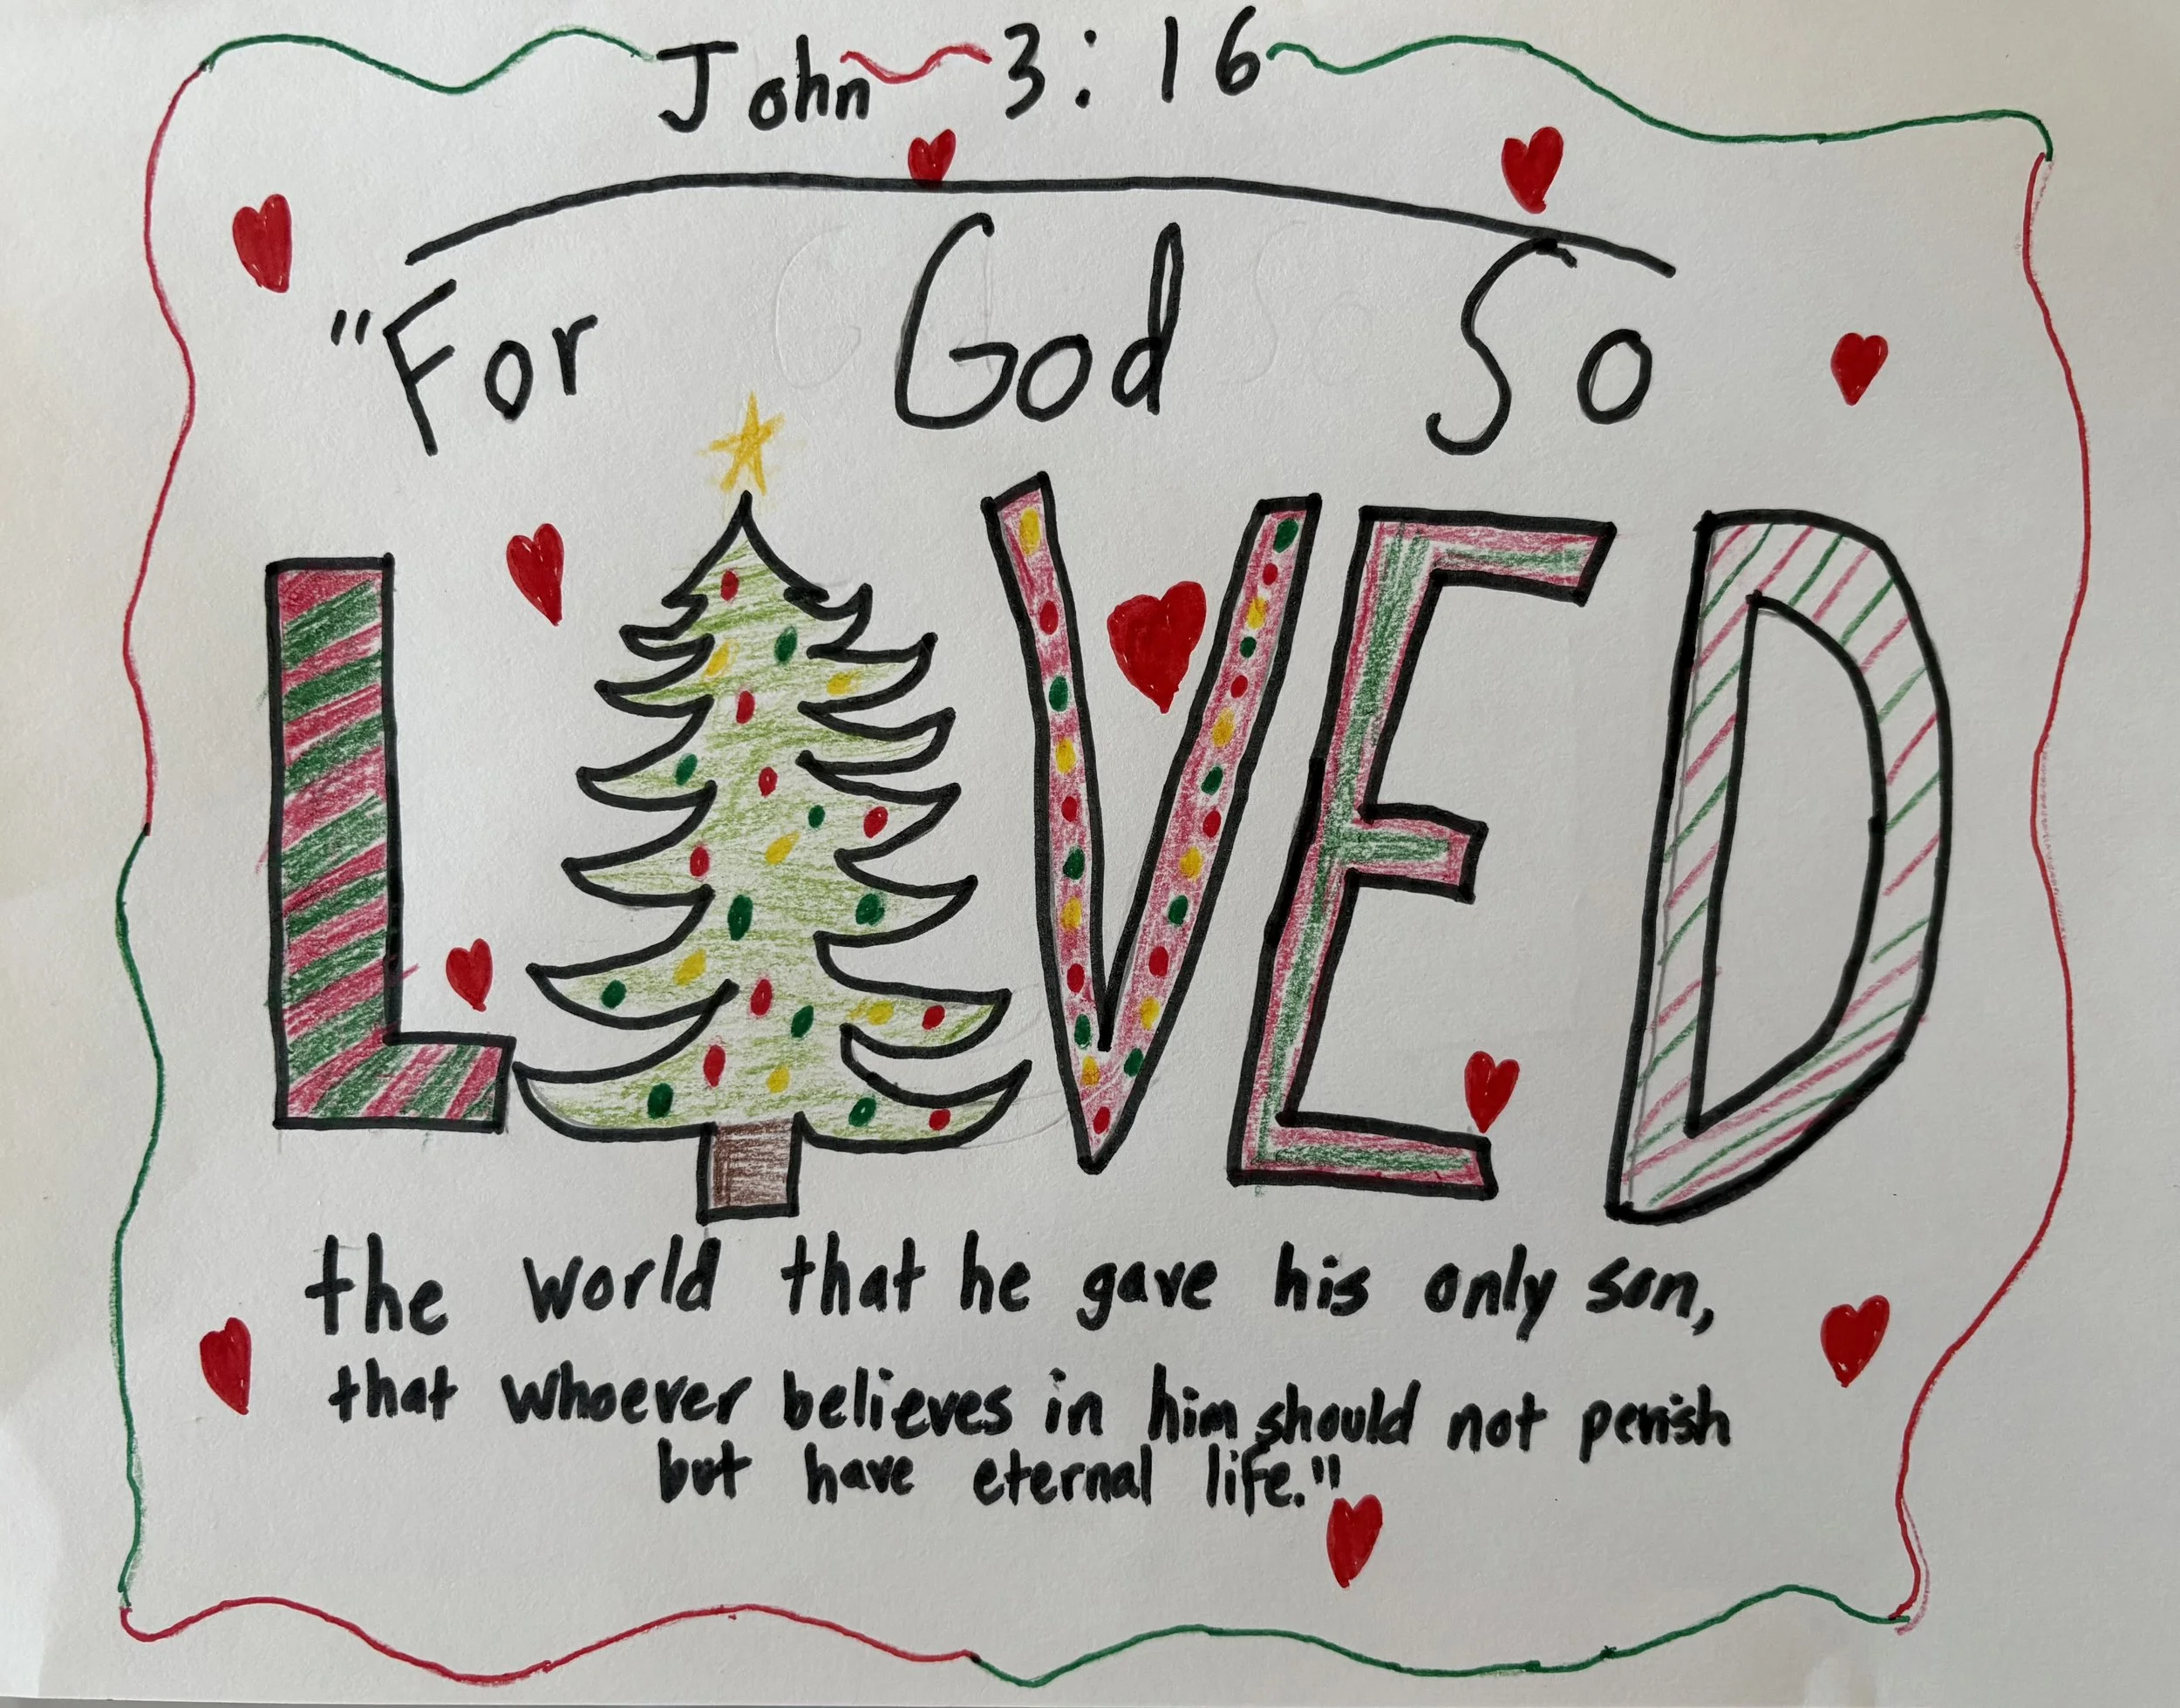 John 3:16
"For God So
LOVED
the world that he gave his only son,
that whoever believes in him should not perish
but have eternal life."